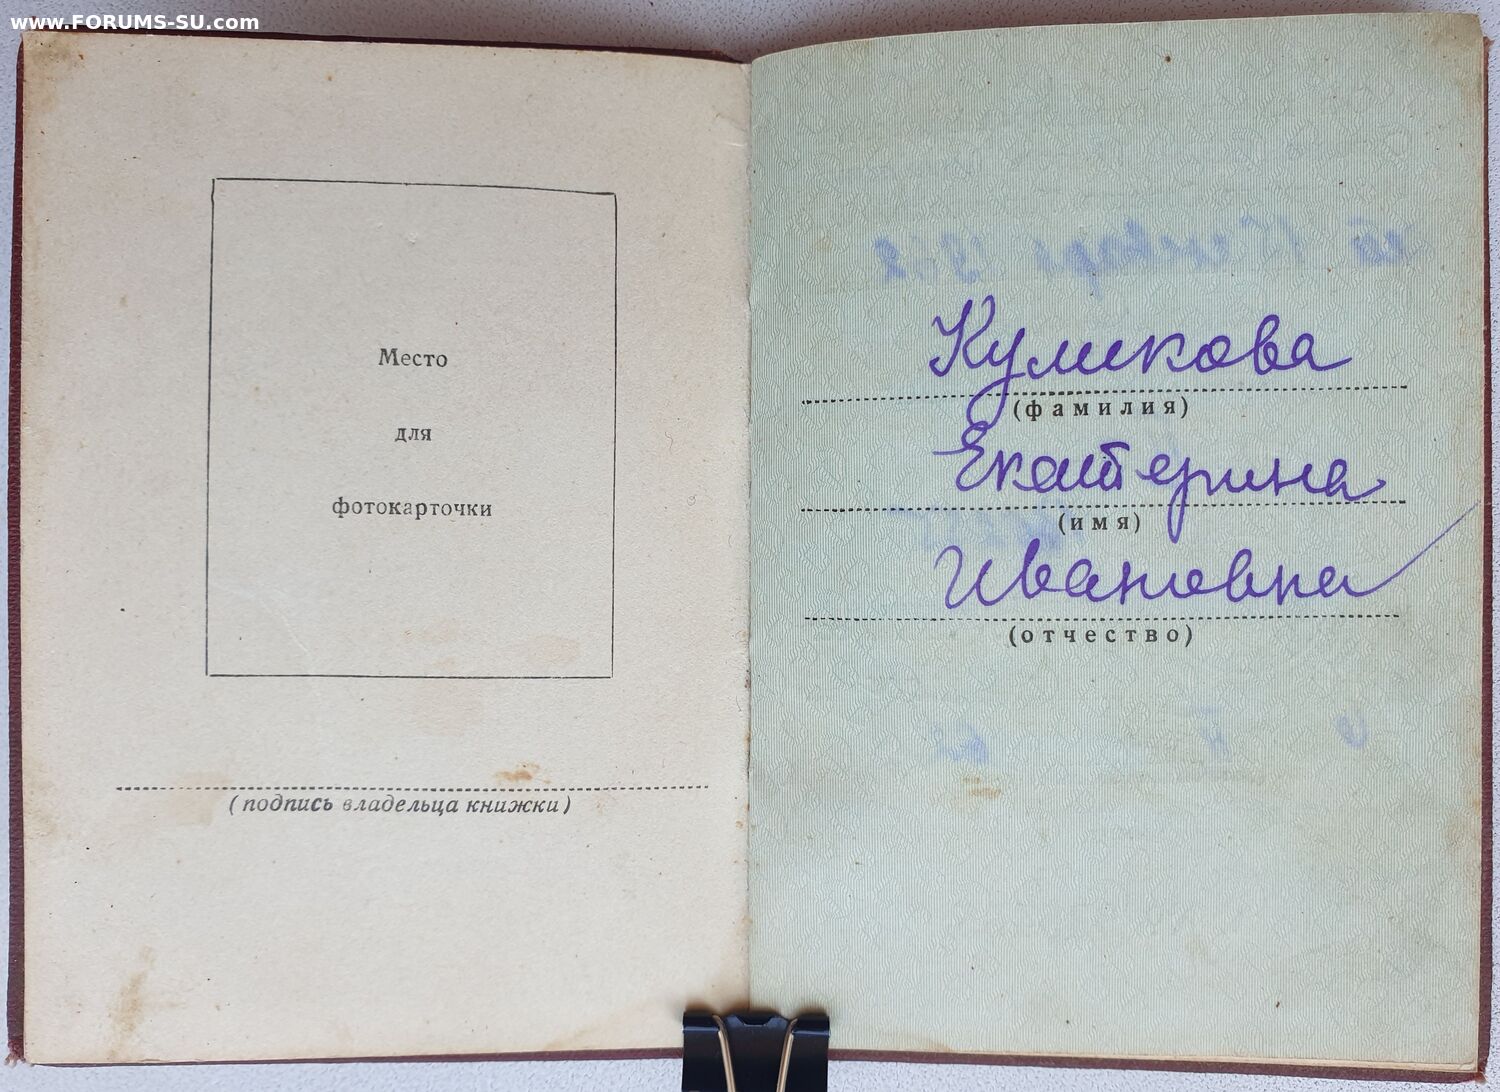 www.FORUMS-SU.com
Место
для
фотокарточки
(подпись владельца книжки)
Куликова
(фамилия)
Екатерина
(имя)
Ивановна
(отчество)